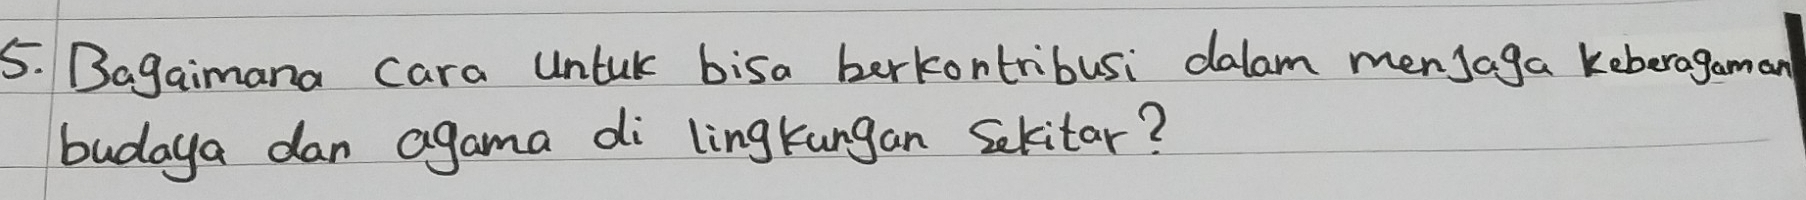 5. Bagaimana cara untuk bisa berkontribusi dalam menjaga keberagaman
budaya dan agama di lingkungan sekitar?